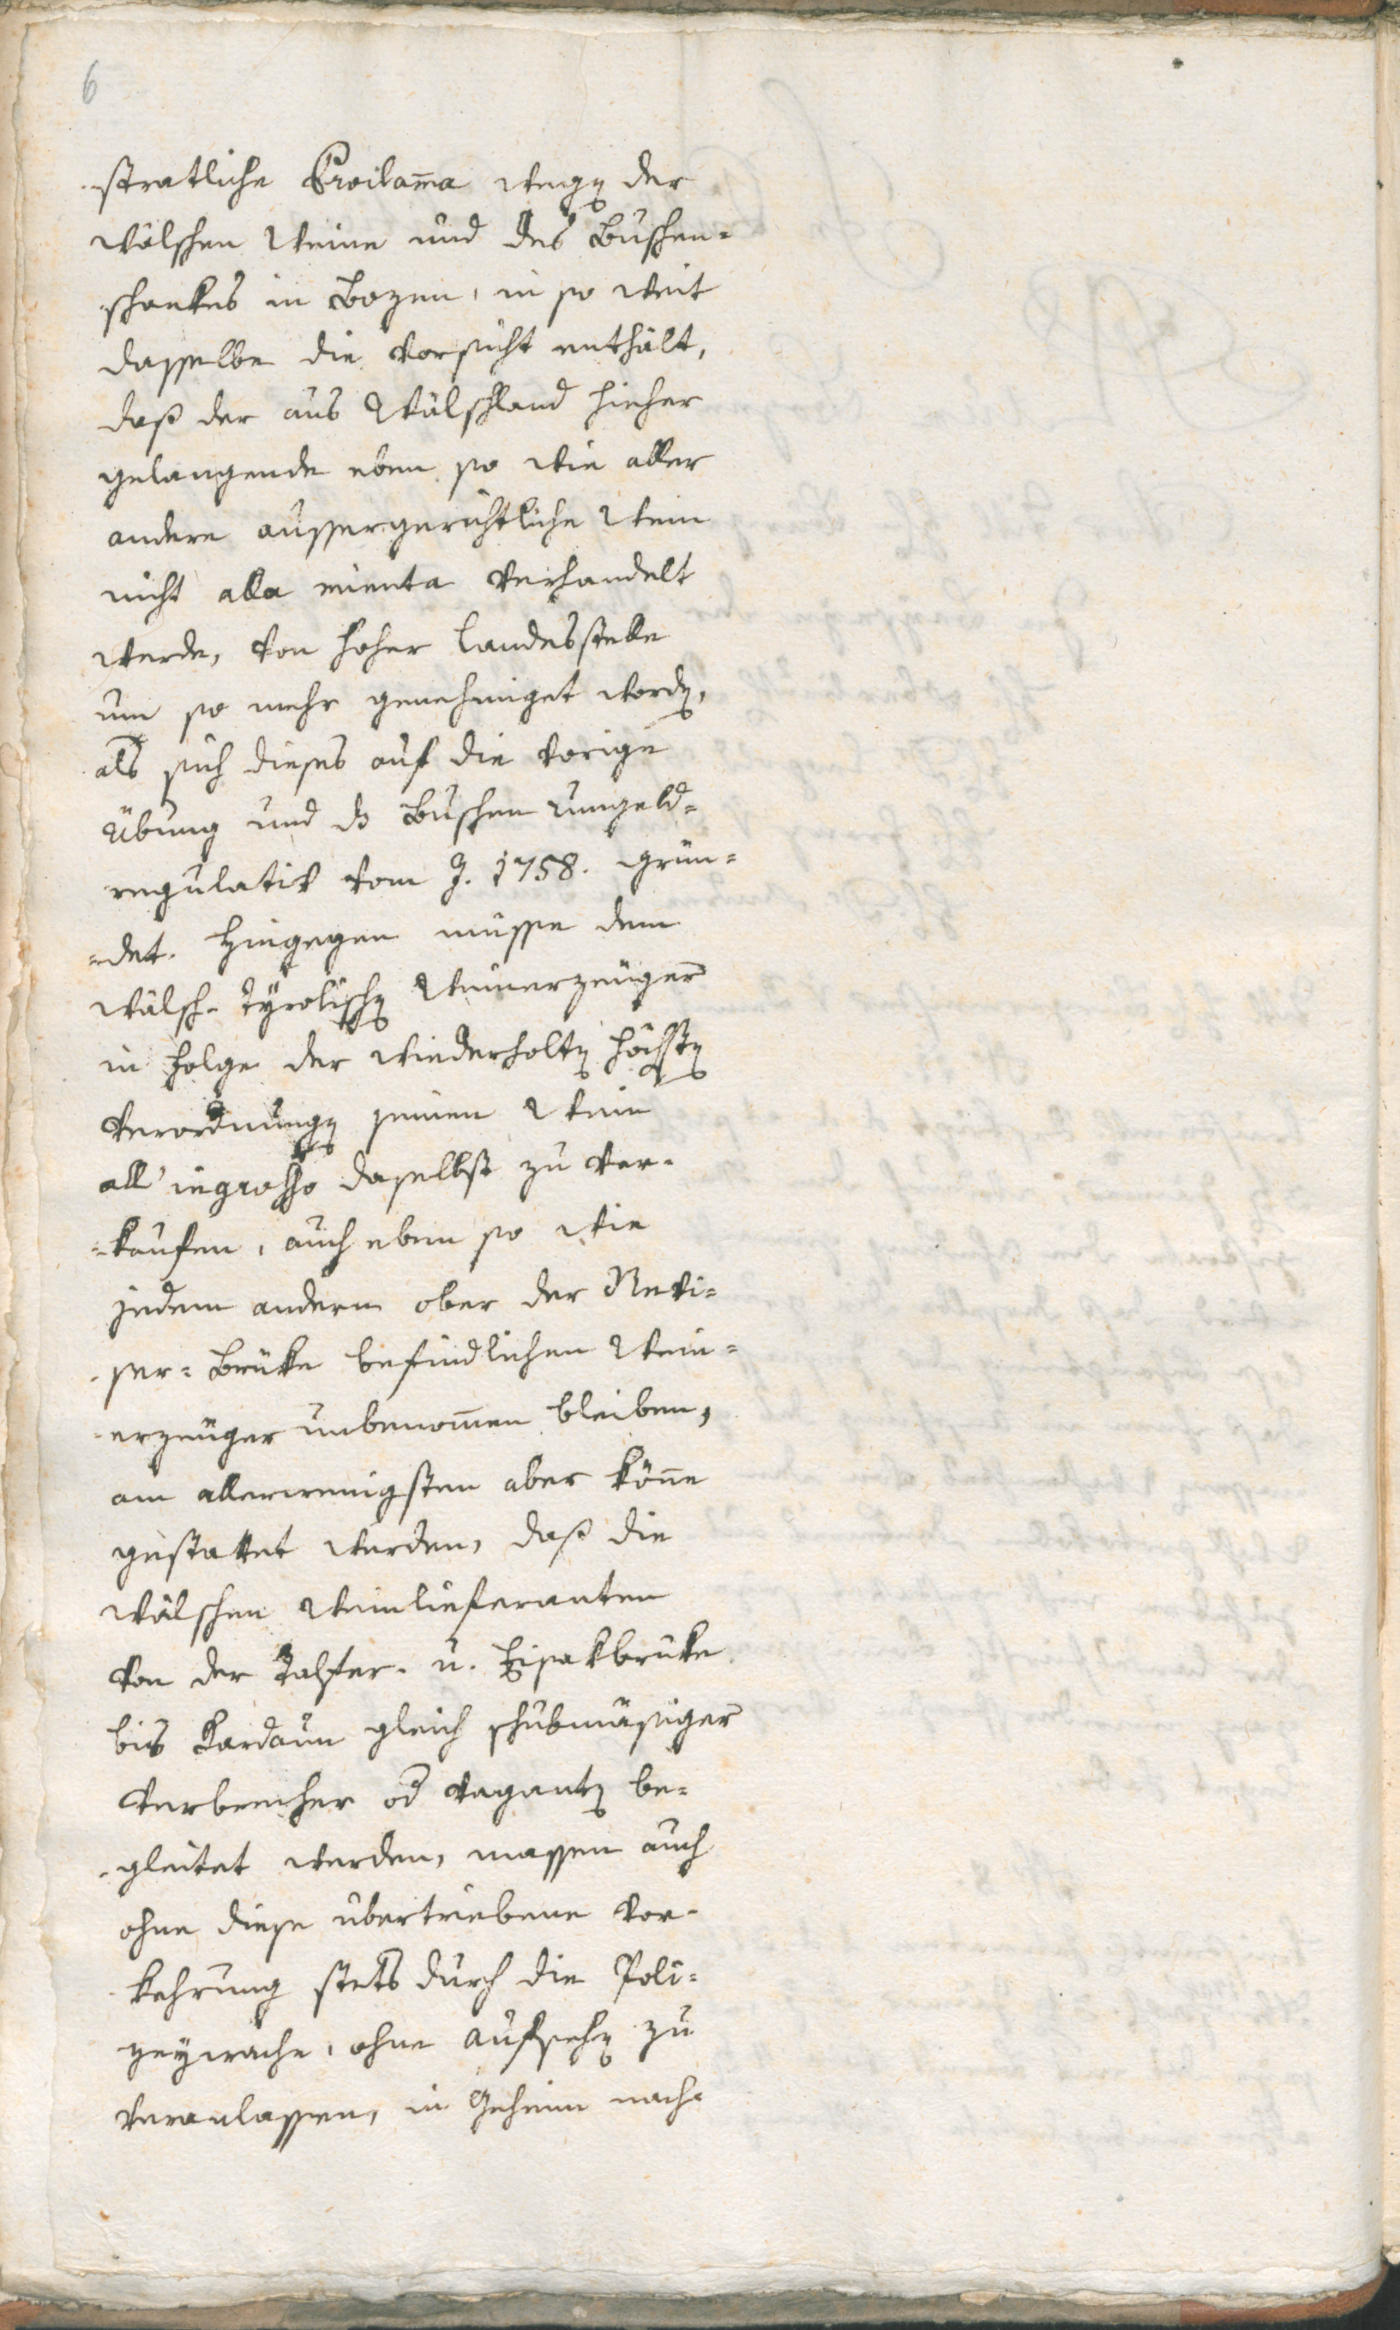 6
stratliche Proclama wegen der
wälschen Weine und des Buschen-
schankes in Bozen, in so weit
dasselbe die Vorsicht enthält,
daß der aus Wälschland hieher
gelangende eben so wie aller
andere aussergerichtliche Wein
nicht alla minuta verhandelt
werde, von hoher Landesstelle
um so mehr genehmiget worden,
als sich dieses auf die vorige
Übung und das Buschen Umgeld-
regulativ vom J. 1758. grün-
-det. Hingegen müsse dem
wälsch-Tyrolischen Weinerzeuger
in Folge der wiederholten höchsten
Verordnungen seinen Wein
all' ingrosso daselbst zu ver-
-kaufen, auch eben so wie
jedem andern ober der Nevi-
ser-Brüke befindlichen Wein-
-erzeuger unbenom̄en bleiben,
am allerwenigsten aber kön̄e
gestattet werden, daß die
wälschen Weinlieferanten
von der Talfer- u. Eisakbrüke
bis Kardaun gleich schubmäsiger
Verbrecher od Vaganten be-
-gleitet werden, massen auch
ohne diese übertriebene Vor-
kehrung stets durch die Poli-
zeywache, ohne Aufsehen zu
veranlassen, in Geheim nach-